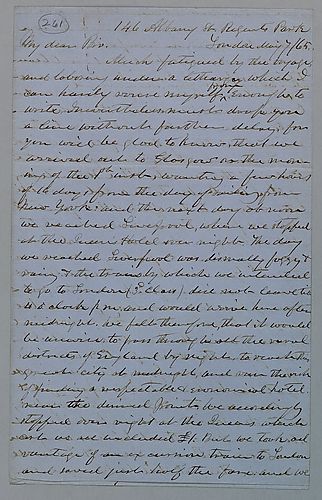 (261)
146 Albany St Regents Park
My dear Bro. London May 7/65
Much fatigued by the voyage
and laboring under a lethargy which I
can hardly rouse myself from enough to
write I nevertheless must drop you
a line without further delay, for
you will be glad to know that we
arrived out to Glasgow on the morn
ing of the 1st inst, wanting a few hours
of 16 days from the day of sailing from
New York: and the next day at noon
we reached Liverpool, where we stopped
at the Queens Hotel over night. The day
we reached Liverpool was dismally foggy &
rainy, & the train by which we intended
to go to London (3d Class) did not leave till
4 o'clock p.m. and would arrive here after
midnight. We felt therefore, that it would
be unwise to pass through all the rural
districts of England by night, to reach this
great city at midnight, and run the risk
of finding a respectable economical hotel
near the denued points. We accordingly
stopped over night at the Queens which
cost us all included £1. But we took ad
vantage of an excursion train to London
and saved just half the fare: and we